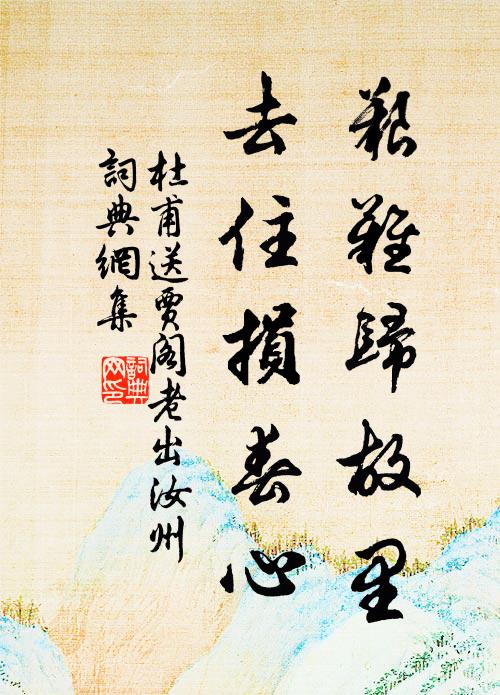 艱難歸故里
去住損春心
杜甫送賈閣老出汝州
詞典網集
詞典網印